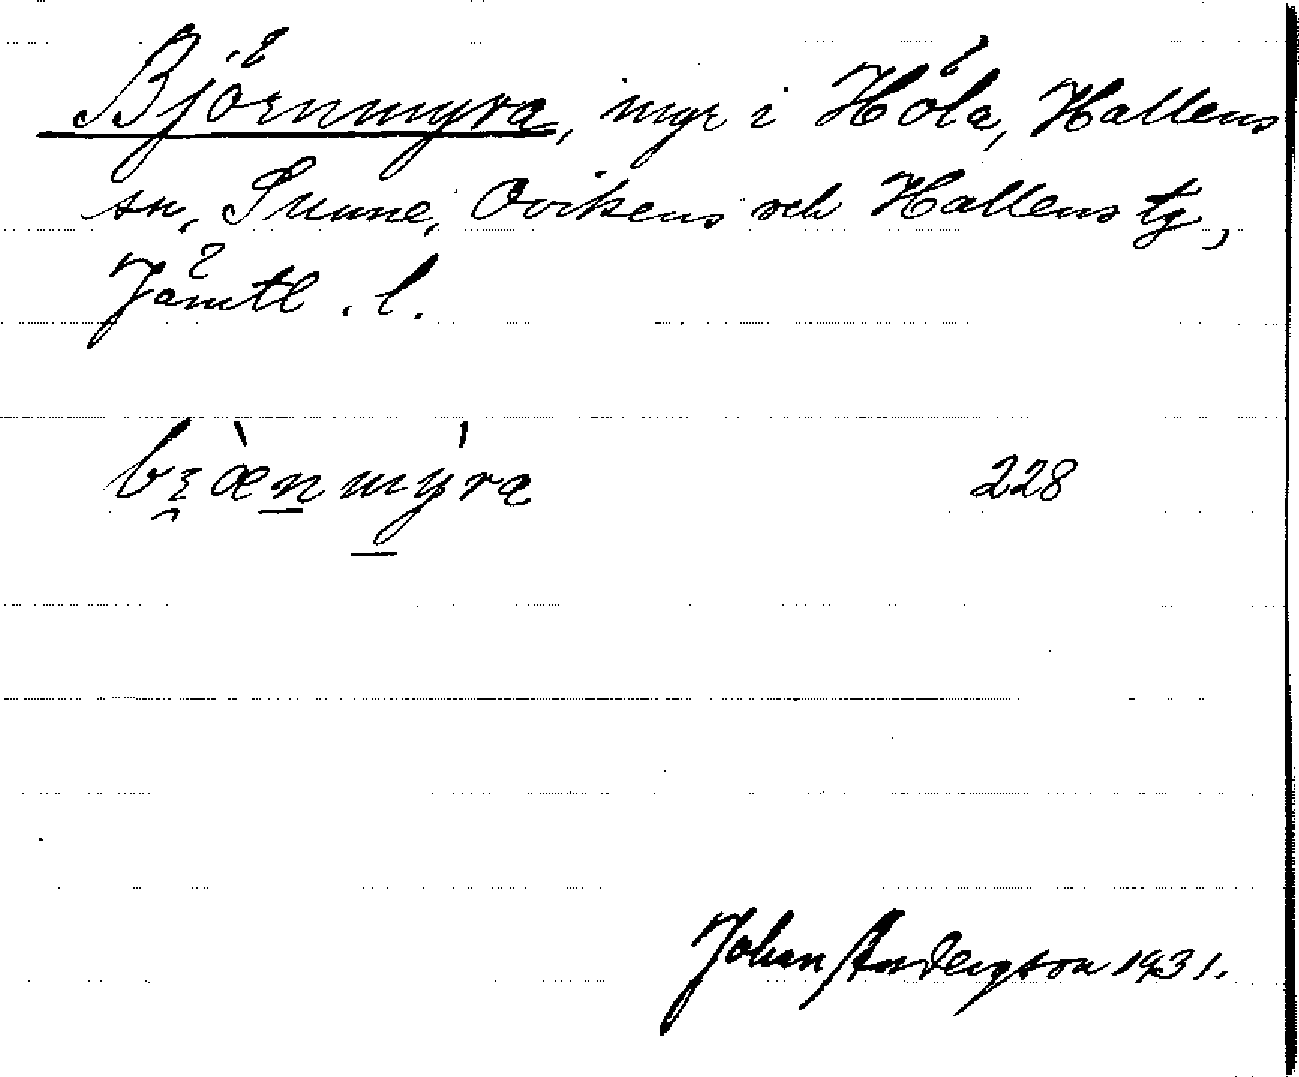 Björnmyra, myr i Höla, Hallens
sn, Sunne, Ovikens och Hallens tg,
Jämtl. l.
228
Johan Anderson 1931.